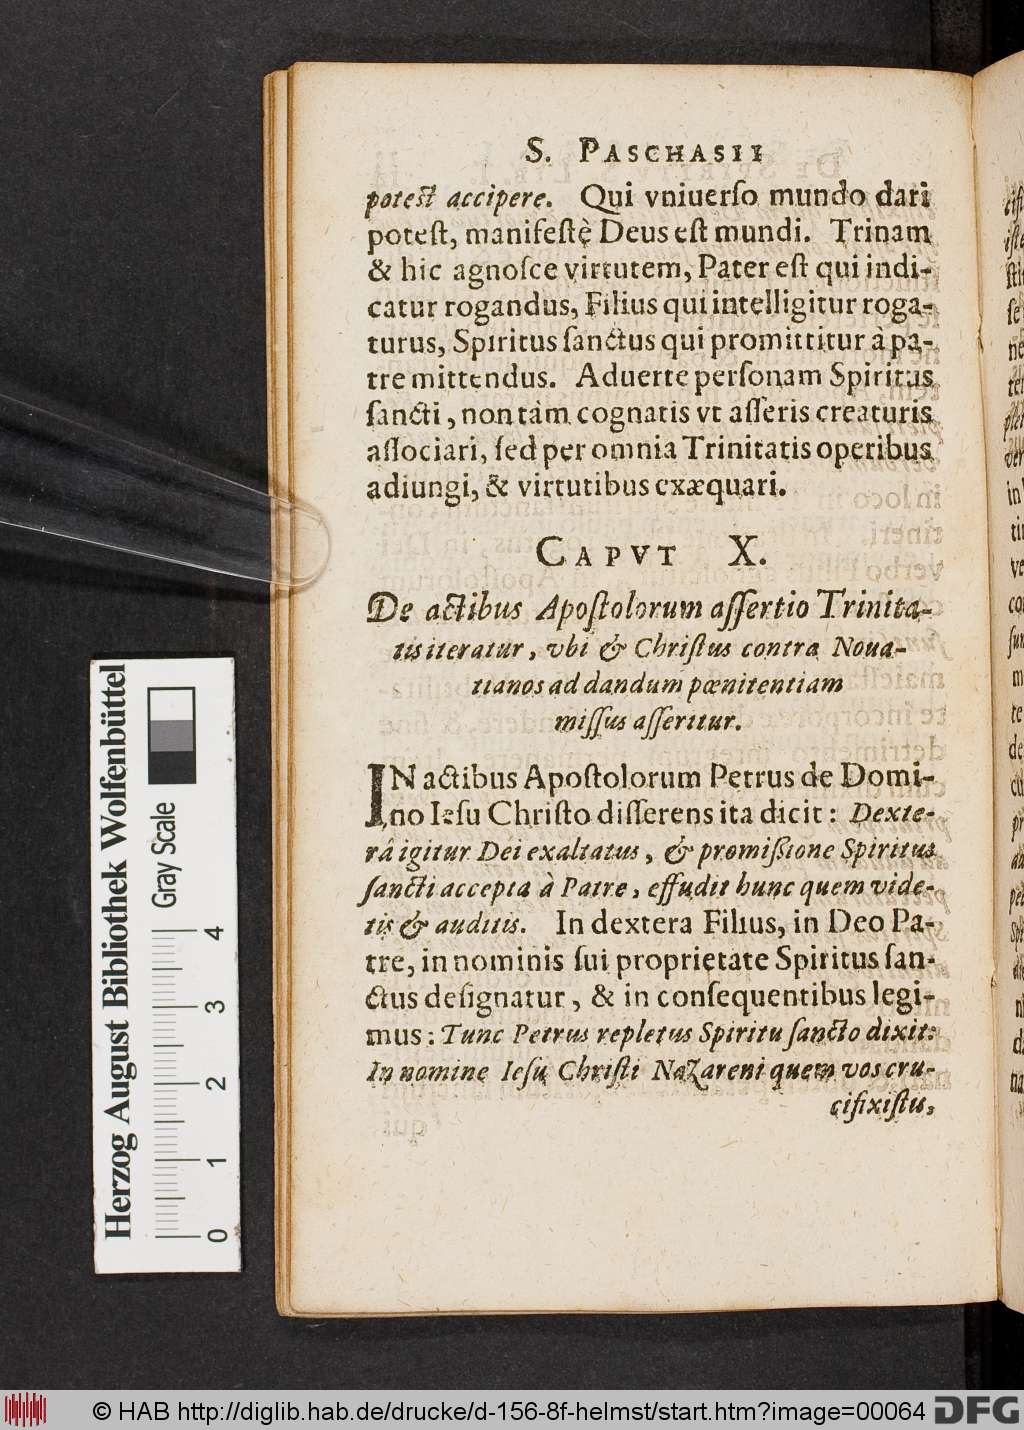 S. PASCHASII
potest accipere. Qui vniuerſo mundo dari
poteſt, manifeſtè Deus eſt mundi. Trinam
& hic agnoſce virtutem, Pater eſt qui indi-
catur rogandus, Filius qui intelligitur roga-
turus, Spiritus ſanctus qui promittitur à pa-
tre mittendus. Aduerte perſonam Spiritus
ſancti, non tàm cognatis vt aſſeris creaturis
aſſociari, ſed per omnia Trinitatis operibus
adiungi, & virtutibus exæquari.
CAPVT X.
De actibus Apoſtolorum aſſertio Trinita-
tis iteratur, vbi & Chriſtus contra Noua-
tianos ad dandum pœnitentiam
miſſus aſſeritur.
IN actibus Apoſtolorum Petrus de Domi-
no Ieſu Chriſto diſſerens ita dicit: Dexte-
râ igitur Dei exaltatus, & promißione Spiritus
ſancti accepta à Patre, effudit hunc quem vide-
tis & auditis. In dextera Filius, in Deo Pa-
tre, in nominis ſui proprietate Spiritus ſan-
ctus deſignatur, & in conſequentibus legi-
mus: Tunc Petrus repletus Spiritu ſancto dixit:
In nomine Ieſu Chriſti Nazareni quem vos cru-
cifixiſtis,
Herzog August Bibliothek Wolfenbüttel
Gray Scale
0 1 2 3 4
© HAB http://diglib.hab.de/drucke/d-156-8f-helmst/start.htm?image=00064
DFG